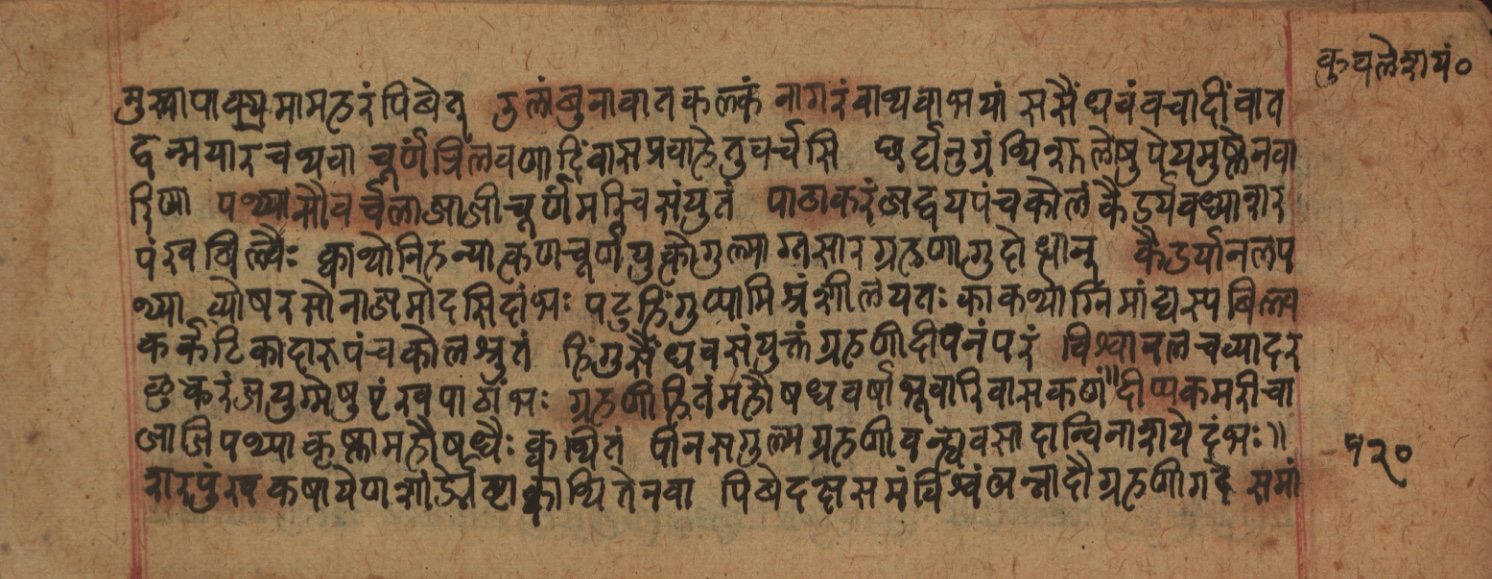 कुचलेशयं०
मुस्त्वापाक्यमामहरंपिबेत् उलांबुनावातकलकं नागरंवाथवाभयां ससैंधवंवचादींवात
द्वन्मयारचथवा चूर्णंत्रिलवणादिंवासप्रवाहेतुवर्चसि छर्द्यनुग्रंथिशूलेषुपेयमुष्णेनवा
रिणा पथ्यासौवर्चलाजाजीचूर्णंमरिचसंयुतं पाठाकरंजद्वयपंचकोलंकैडर्यवध्याशर
पंखबिल्वैः क्वाथोनिहन्यात्कणचूर्णयुक्तोगुल्माग्तसारग्रहणीगुदोद्भान् कैडर्यानलप
थ्या व्योषरसोनाजमोदसिदांभः पटुहिंगुप्पामिश्रंशीलयतः काकथाग्निमांद्यस्य बिल्व
कर्कटिकादारुपंचकोलश्रुतं हिंगुसैंधवसंयुक्तंग्रहणीदीपनंपरं विश्वानलचव्यादर
लुकरंजयुग्मेषुपुंखपाठांभः ग्रहणीहितंमहौषधवर्षाभूवारिवासकणं॥दीप्यकमरीचा
जाजिपथ्याकृष्णामहौषधैः क्वथितं पीनसगुल्मग्रहणीवन्ह्यवसादान्विनाशयेदंभः॥
शरपुंखकषायेणशोंडीक्वाथितेनवा पिबेदक्षसमंविश्वंजन्मादौग्रहणीगदे समां
१२०